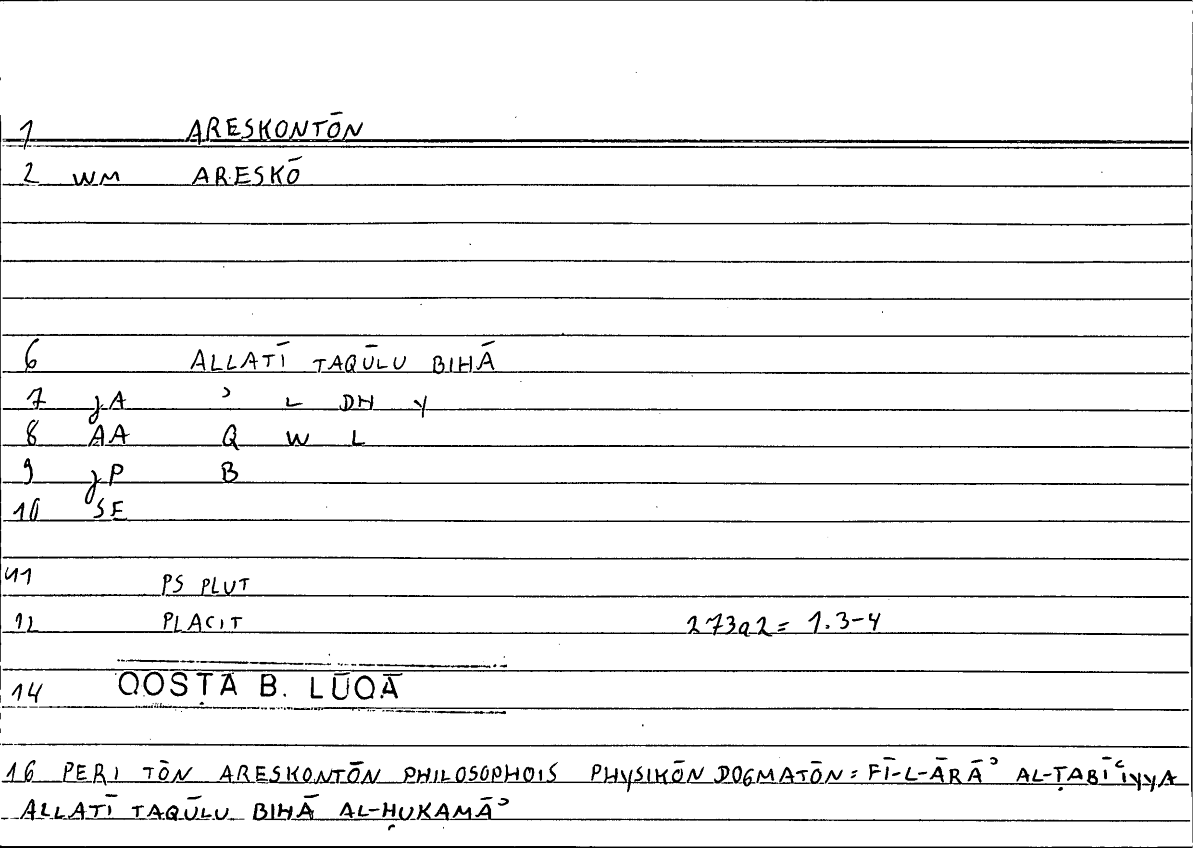 1 ARESKONTŌN
2 WM ARESKŌ
6 ALLATĪ TAQŪLU BIHĀ
7 JA ʾ L DH Y
8 AA Q W L
9 JP B
10 SE
11 PS PLUT
12 PLACIT 273a2 = 1.3-4
14 QOSṬĀ B. LŪQĀ
16 PERI TŌN ARESKONTŌN PHILOSOPHOIS PHYSIKŌN DOGMATŌN = FĪ-L-ĀRĀʾ AL-ṬABĪʿIYYA
ALLATĪ TAQŪLU BIHĀ AL-ḤUKAMĀʾ